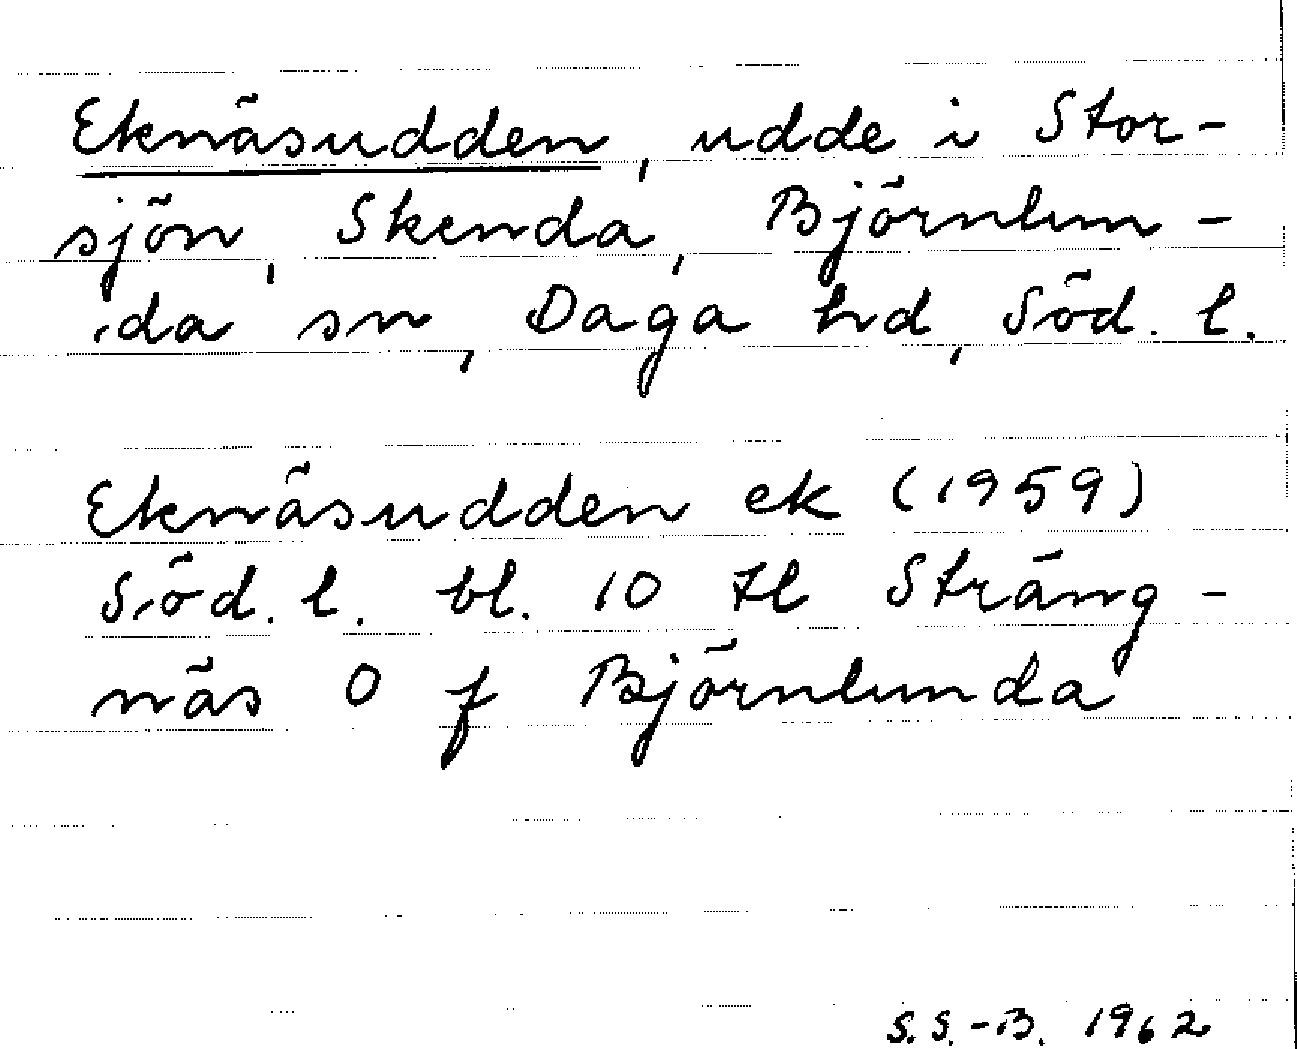 Eknäsudden, udde i Stor-
sjön, Skenda, Björnlun-
da sn, Daga hd, Söd. l.
Eknäsudden ek (1959)
Söd. l. bl. 10 tl Sträng-
näs O f Björnlunda
S.S.-B. 1962